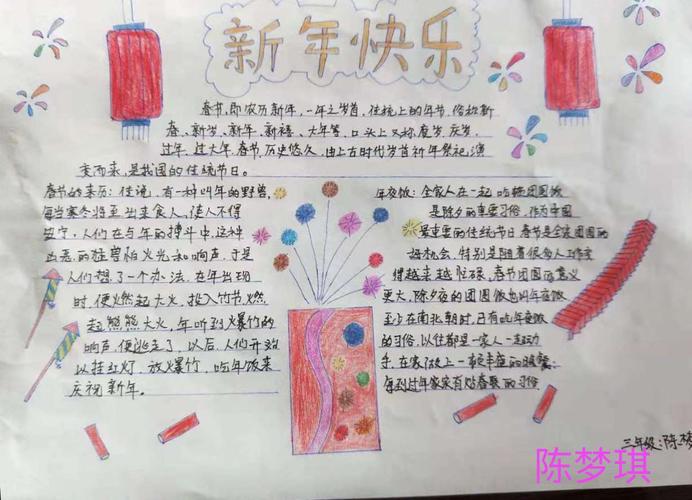 新年快乐
春节,即农历新年,一年之岁首,传统上的年节,俗称新
春、新岁、新年、新禧、大年等,口头上又称度岁、庆岁、
过年、过大年,春节,历史悠久,由上古时代岁首祈年祭祀演
变而来,是我国的传统节日。
春节的来历:传说,有一种叫年的野兽,
每当寒冬将至出来食人,使人不得
安宁,人们在与年的搏斗中,这种
凶恶的怪兽怕火光和响声,于是
人们想了一个办法,在年出现
时,便燃起大火,投入竹节,燃
起熊熊大火,年听到爆竹的
响声,便逃走了,以后,人们开始
以挂红灯,放爆竹,吃年饭来
庆祝新年。
年夜饭:全家人在一起吃顿团圆饭
是除夕的重要习俗,作为中国
最重要的传统节日春节是全家团圆的
好机会,特别是随着很多人工作变
得越来越忙碌,春节团圆的意义
更大,除夕夜的团圆饭也叫年夜饭
至少在南北朝时,已有吃年夜饭
的习俗,以往都是一家人一起动
手,在家做上一顿丰盛的晚餐
每到过年家家有贴春联的习俗
三年级:陈梦
陈梦琪